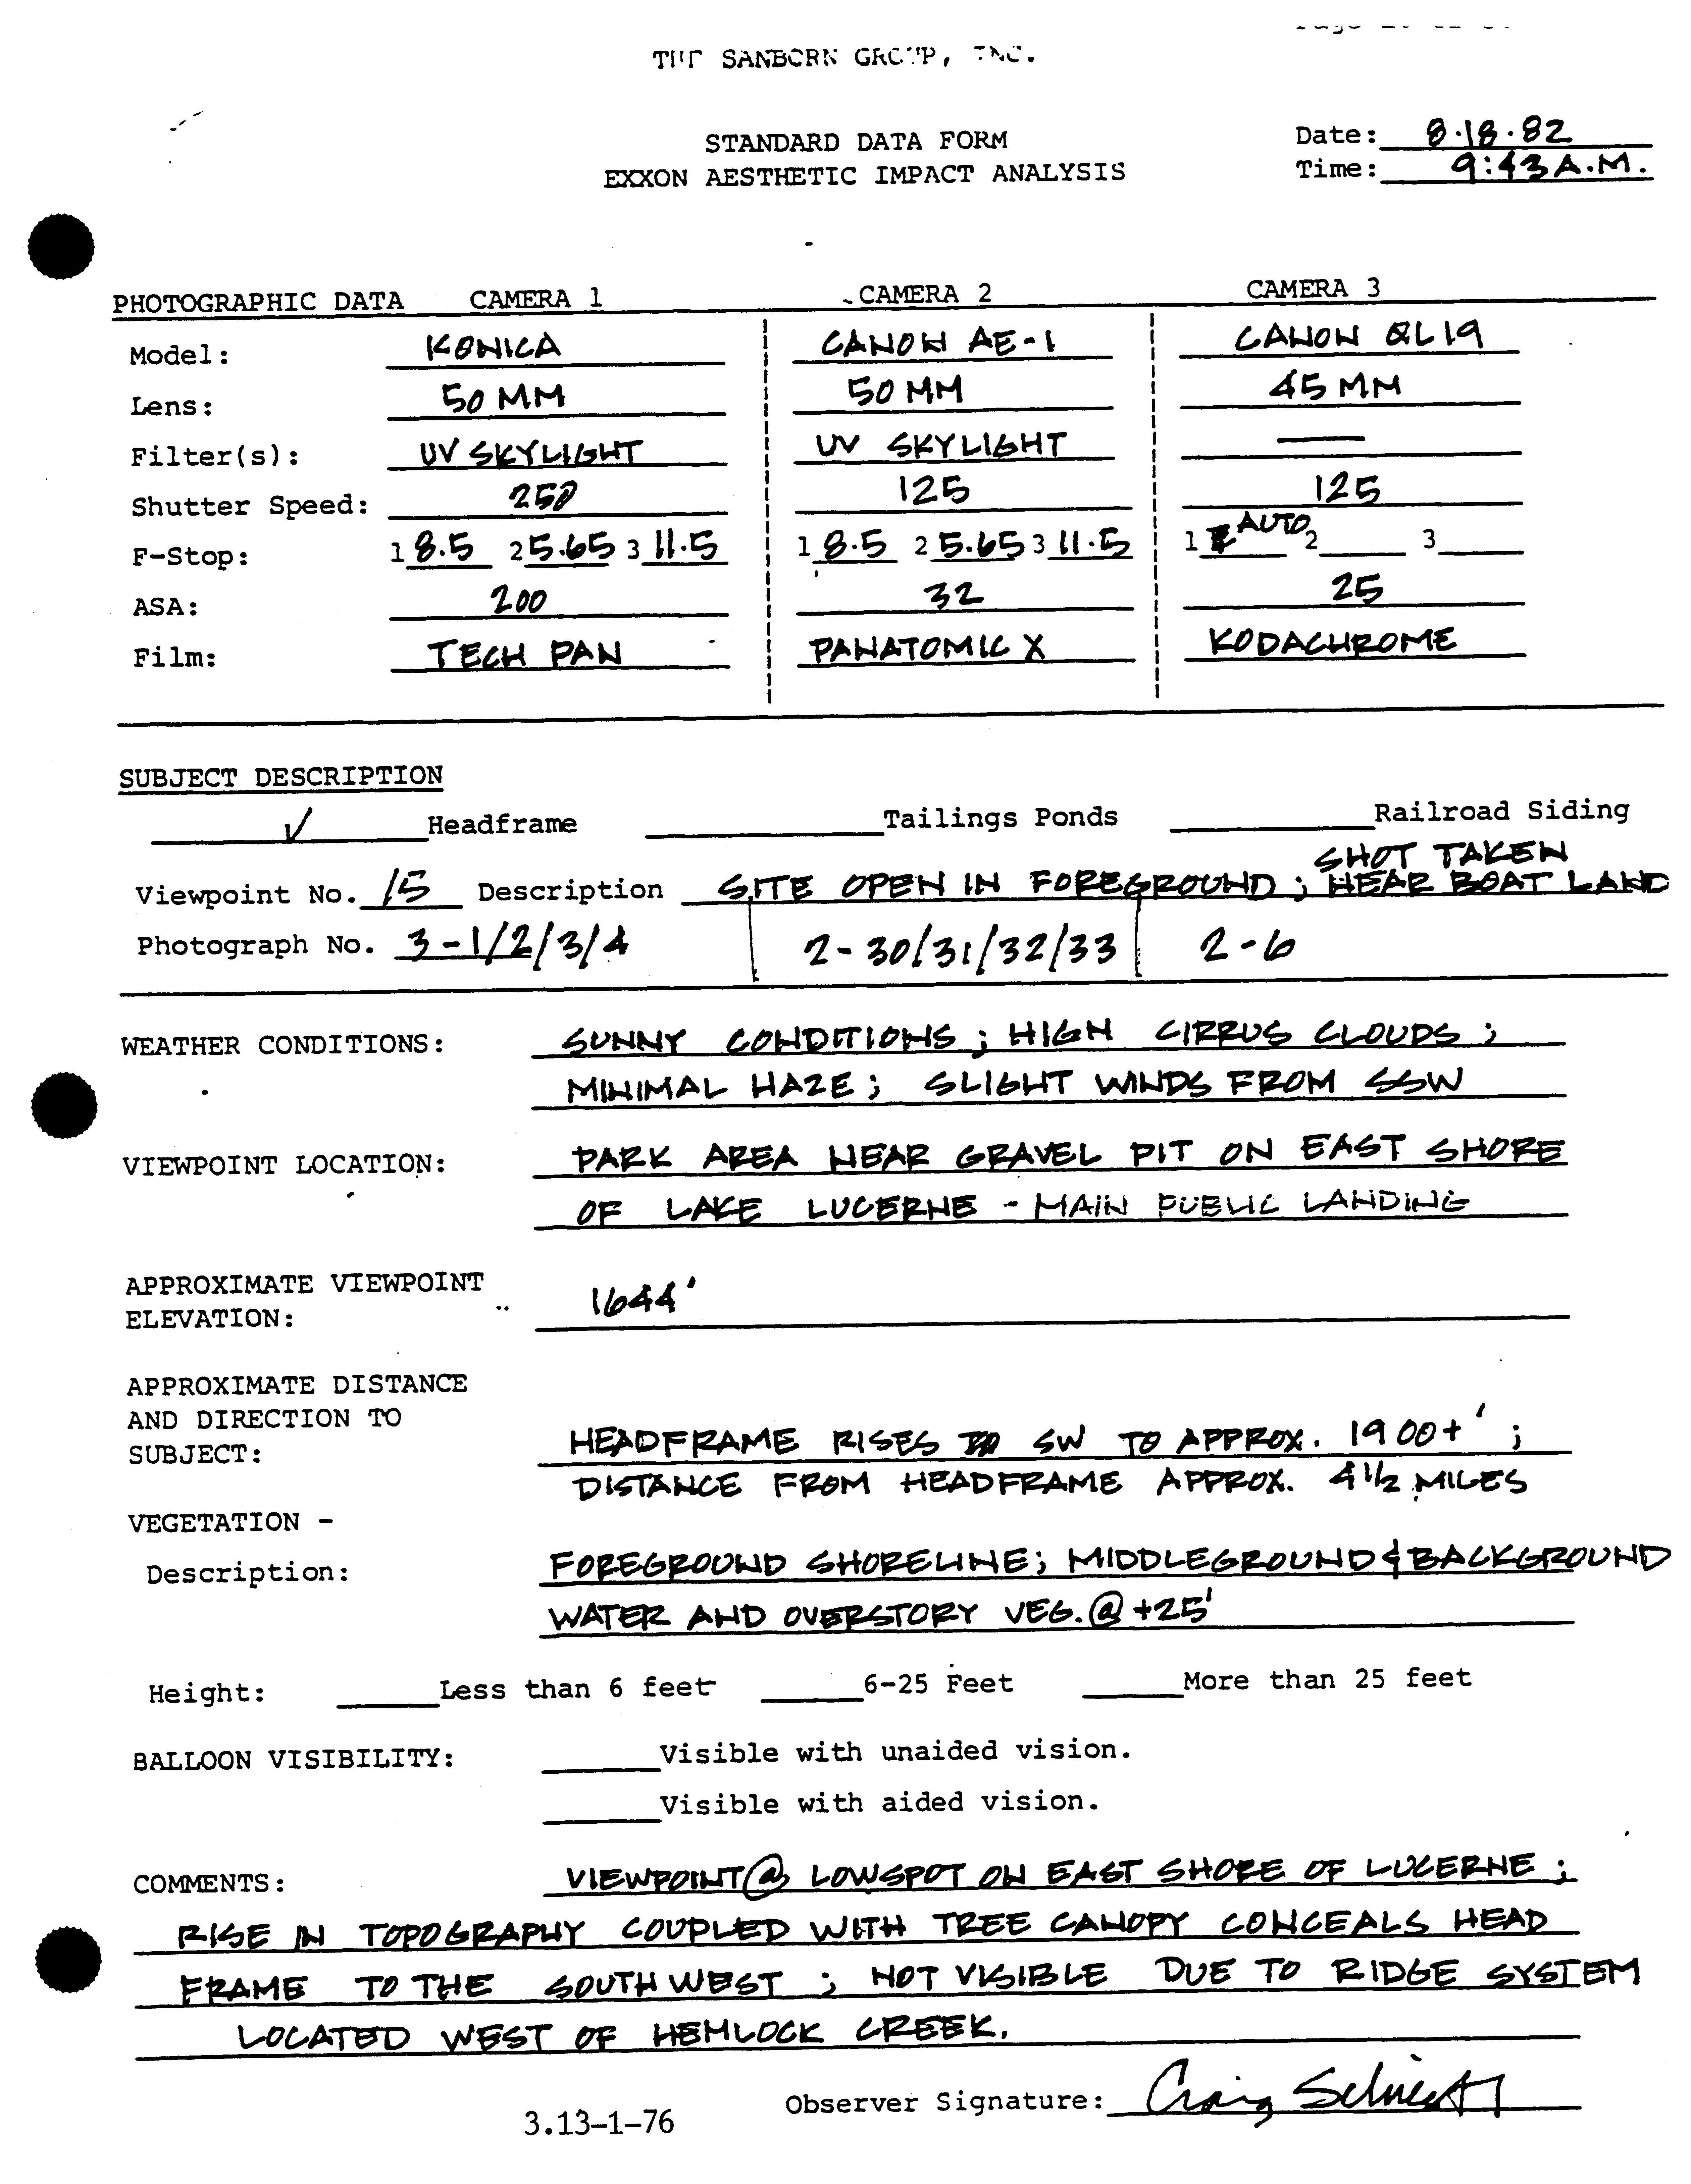 THE SANBORN GROUP, INC.
STANDARD DATA FORM
EXXON AESTHETIC IMPACT ANALYSIS
Date: 8.18.82
Time: 9:43 A.M.
PHOTOGRAPHIC DATA CAMERA 1 CAMERA 2 CAMERA 3
Model: KONICA CANON AE-1 CANON QL19
Lens: 50 MM 50 MM 45 MM
Filter(s): UV SKYLIGHT UV SKYLIGHT —
Shutter Speed: 250 125 125
F-Stop: 1 8.5 2 5.65 3 11.5 1 8.5 2 5.65 3 11.5 1 AUTO 2 3
ASA: 200 32 25
Film: TECH PAN PANATOMIC X KODACHROME
SUBJECT DESCRIPTION
✓ Headframe Tailings Ponds Railroad Siding
SHOT TAKEN
Viewpoint No. 15 Description SITE OPEN IN FOREGROUND ; NEAR BOAT LAND
Photograph No. 3-1/2/3/4 2-30/31/32/33 2-6
WEATHER CONDITIONS: SUNNY CONDITIONS ; HIGH CIRRUS CLOUDS ;
MINIMAL HAZE ; SLIGHT WINDS FROM SSW
VIEWPOINT LOCATION: PARK AREA NEAR GRAVEL PIT ON EAST SHORE
OF LAKE LUCERNE - MAIN PUBLIC LANDING
APPROXIMATE VIEWPOINT
ELEVATION: 1644'
APPROXIMATE DISTANCE
AND DIRECTION TO
SUBJECT: HEADFRAME RISES TO SW TO APPROX. 1900+' ;
DISTANCE FROM HEADFRAME APPROX. 4 1/2 MILES
VEGETATION -
Description: FOREGROUND SHORELINE; MIDDLEGROUND & BACKGROUND
WATER AND OVERSTORY VEG. @ +25'
Height: Less than 6 feet 6-25 Feet More than 25 feet
BALLOON VISIBILITY: Visible with unaided vision.
Visible with aided vision.
COMMENTS: VIEWPOINT @ LOWSPOT ON EAST SHORE OF LUCERNE ;
RISE IN TOPOGRAPHY COUPLED WITH TREE CANOPY CONCEALS HEAD
FRAME TO THE SOUTHWEST ; NOT VISIBLE DUE TO RIDGE SYSTEM
LOCATED WEST OF HEMLOCK CREEK.
Observer Signature: Craig
3.13-1-76